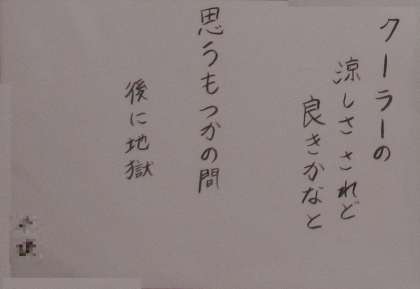 クーラーの
涼しさされど
良きかなと
思うもつかの間
後に地獄